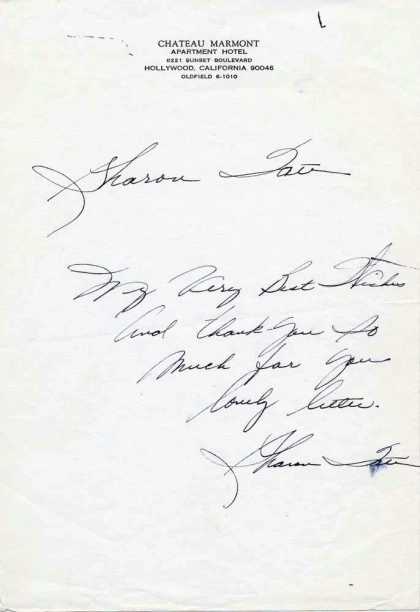 CHATEAU MARMONT
APARTMENT HOTEL
8221 SUNSET BOULEVARD
HOLLYWOOD, CALIFORNIA 90046
OLDFIELD 6-1010
Sharon Tate
My Very Best Wishes
And thank you so
much for you
lovely letter.
Sharon Tate